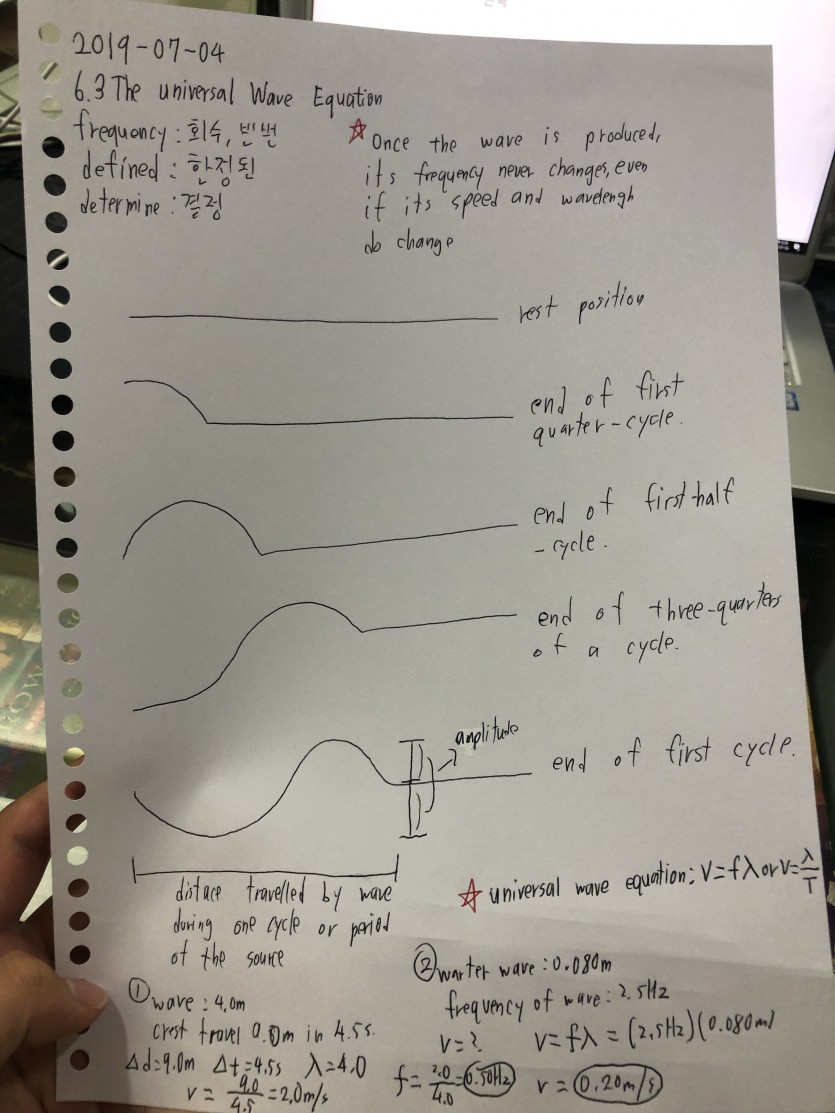 2019-07-04
6.3 The universal Wave Equation
frequency : 회수, 빈번
defined : 한정된
determine : 결정
☆ Once the wave is produced,
its frequency never changes, even
if its speed and wavelengh
do change
rest position
end of first
quarter-cycle.
end of first half
-cycle.
end of three-quarters
of a cycle.
amplitude
end of first cycle.
distace travelled by wave
during one cycle or period
of the source
☆ universal wave equation: V=fλ or V=λ/T
① wave : 4.0m
crest travel 0.0m in 4.5s.
Δd=9.0m Δt=4.5s λ=4.0
v = 9.0/4.5 = 2.0m/s
f = 2.0/4.0 = 0.50Hz
② warter wave : 0.080m
frequency of wave : 2.5Hz
v=? v=fλ = (2.5Hz)(0.080m)
v = 0.20m/s